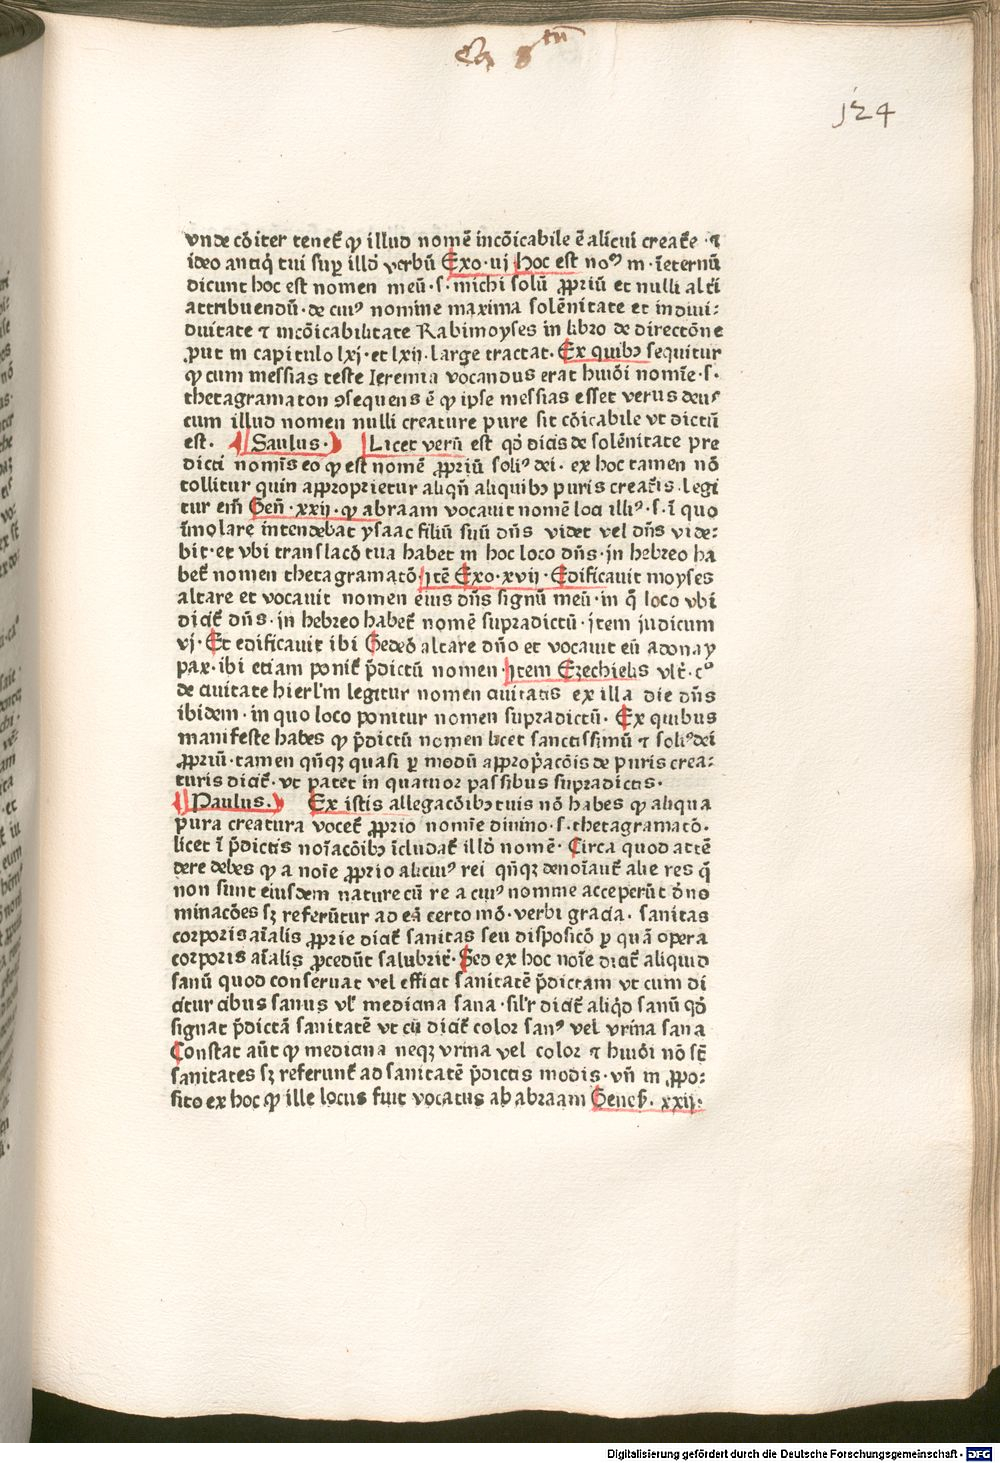 Ca 8tū
124
vnde cōiter tenet̄ ꝙ illud nomē incōicabile ē alicui creat̄e · ⁊
ideo antiq̇ tui suꝑ illd̄ verbū Exo · iij Hoc est noꝰ m · īeternū
dicunt hoc est nomen meū · s · michi solū ꝓpriū et nulli alt̄i
attribuendū · de cuiꝰ nomine maxima solēnitate et indiui⸗
duitate ⁊ incōicabilitate Rabimoyses in libro de directōne
ꝓut in capitulo lxj · et lxij · large tractat · Ex quibꝫ sequitur
ꝙ cum messias teste Ieremia vocandus erat huiōi nomīe · s ·
thetagramaton ꝯsequens ē ꝙ ipse messias esset verus deus
cum illud nomen nulli creature pure sit cōicabile vt dictū
est · Saulus · Licet verū est qd̄ dicis de solēnitate pre
dicti nomīs eo ꝙ est nomē ꝓpriū soliꝰ dei · ex hoc tamen nō
tollitur quin approprietur aliqn̄ aliquibꝫ puris creat̄is · legi
tur em̄ Gen̄ · xxij · ꝙ abraam vocauit nomē loci illiꝰ · s · ī quo
īmolare intendebat ysaac filiū suū dn̄s videt vel dn̄s vide⸗
bit · et vbi translacō tua habet in hoc loco dn̄s · in hebreo ha
bet̄ nomen thetagramatō · itē Exo · xvij · Edificauit moyses
altare et vocauit nomen eius dn̄s signū meū · in q̄ loco vbi
dicit̄ dn̄s · in hebreo habet̄ nomē supradictū · jtem judicum
vj · Et edificauit ibi Gedeō altare dn̄o et vocauit eū adonay
pax · ibi etiam ponit̄ p̄dictū nomen · jtem Ezechielis vlt̄ · cꝰ
de ciuitate hierl̄m legitur nomen ciuitatis ex illa die dn̄s
ibidem · in quo loco ponitur nomen supradictū · Ex quibus
manifeste habes ꝙ p̄dictū nomen licet sanctissimū ⁊ soliꝰ dei
ꝓpriū · tamen qn̄qꝫ quasi ꝑ modū appropⁱacōis de puris crea⸗
turis dicit̄ · vt patet in quatuor passibus supradictis ·
Paulus · Ex istis allegacōibꝫ tuis nō habes ꝙ aliqua
pura creatura vocet̄ ꝓprio nomīe diuino · s · thetagramatō ·
licet ī p̄dictis noīacōibꝫ īcludat̄ illd̄ nomē · Circa quod attē
dere debes ꝙ a noīe ꝓprio alicuiꝰ rei qn̄qꝫ denoīant̄ alie res q̄
non sunt eiusdem nature cū re a cuiꝰ nomine acceperūt d̄no
minacōes sꝫ referūtur ad eā certo mō · verbi gracia · sanitas
corporis aīalis ꝓprie dicit̄ sanitas seu disposicō ꝑ quā opera
corporis aīalis ꝓcedūt salubrit̄ · Sed ex hoc noīe dicit̄ aliquid
sanū quod conseruat vel efficit sanitatē p̄dictam vt cum di
citur cibus sanus vl̄ medicina sana · sil̄r dicit̄ aliqd̄ sanū qd̄
signat p̄dictā sanitatē vt cū dicit̄ color sanꝰ vel vrina sana
Constat aūt ꝙ medicina neqꝫ vrina vel color ⁊ huiōi nō st̄
sanitates sꝫ referunt̄ ad sanitatē p̄dictis modis · vn̄ in ꝓpo⸗
sito ex hoc ꝙ ille locus fuit vocatus ab abraam Genes̄ · xxij ·
Digitalisierung gefördert durch die Deutsche Forschungsgemeinschaft - DFG